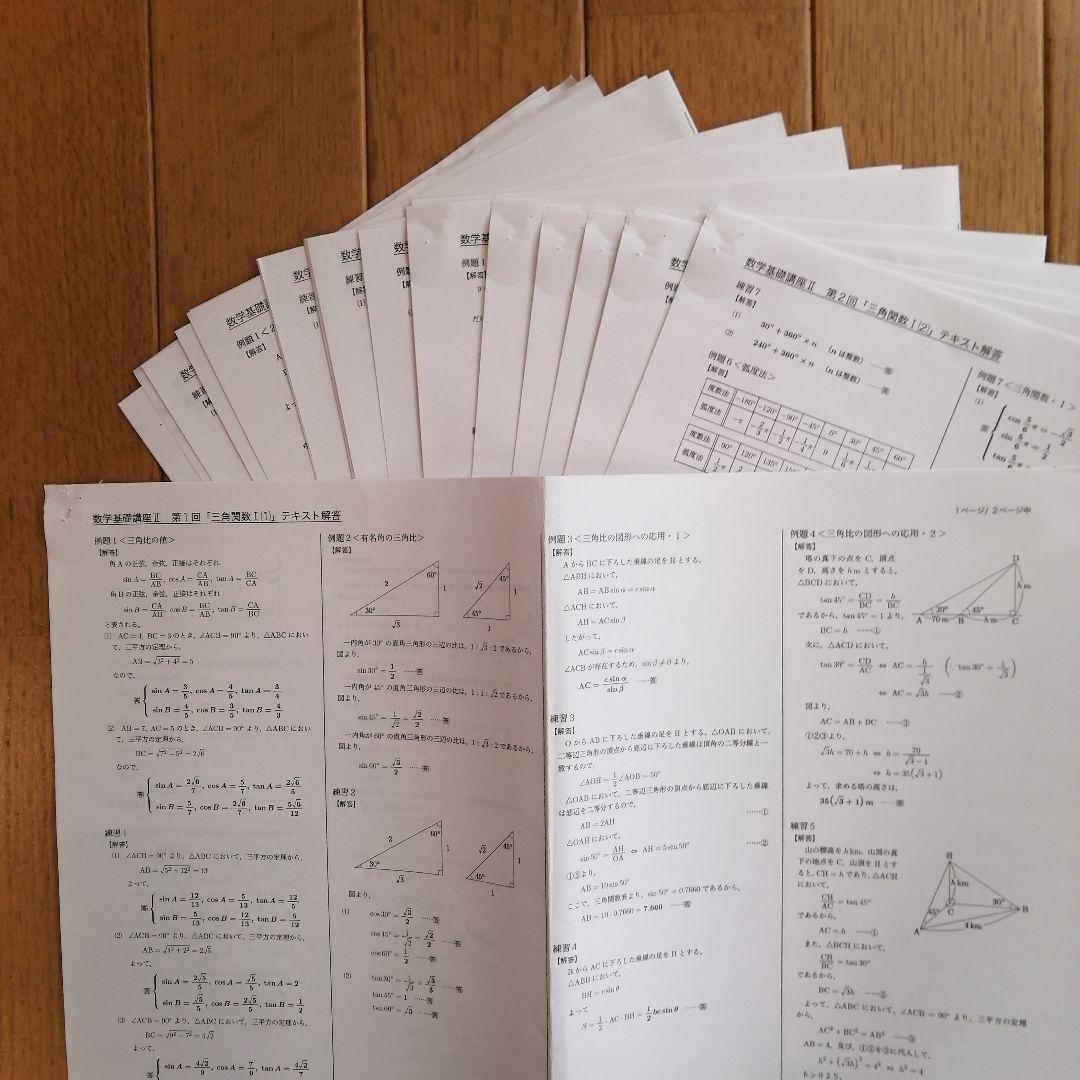 数学基礎講座Ⅱ 第2回「三角関数Ⅰ(2)」テキスト解答
練習7
【解答】
(1) 30°+360°×n (nは整数) ……答
(2) 240°+360°×n (nは整数) ……答
例題6<弧度法>
【解答】
度数法 -180° -120° -90° -45° 0° 30° 45° 60°
弧度法
度数法 90° 120° 135°
弧度法
例題7<三角関数・1>
【解答】
(1)
数学基礎講座Ⅱ 第1回「三角関数Ⅰ(1)」テキスト解答
1ページ/2ページ中
例題1<三角比の値>
【解答】
角Aの正弦,余弦,正接はそれぞれ
sin A = BC/AB, cos A = CA/AB, tan A = BC/CA
角Bの正弦,余弦,正接はそれぞれ
sin B = CA/AB, cos B = BC/AB, tan B = CA/BC
と表される。
(1) AC=4, BC=3のとき,∠ACB=90°より,△ABCにおい
て,三平方の定理から,
AB=√3²+4²=5
なので,
答 sin A = 3/5, cos A = 4/5, tan A = 3/4
sin B = 4/5, cos B = 3/5, tan B = 4/3
(2) AB=7, AC=5のとき,∠ACB=90°より,△ABCにおい
て,三平方の定理から,
BC=√7²-5²=2√6
なので,
答 sin A = 2√6/7, cos A = 5/7, tan A = 2√6/5
sin B = 5/7, cos B = 2√6/7, tan B = 5√6/12
練習1
【解答】
(1) ∠ACB=90°より,△ABCにおいて,三平方の定理から,
AB=√5²+12²=13
よって,
答 sin A = 12/13, cos A = 5/13, tan A = 12/5
sin B = 5/13, cos B = 12/13, tan B = 5/12
(2) ∠ACB=90°より,△ABCにおいて,三平方の定理から,
AB=√4²+2²=2√5
よって,
答 sin A = 2√5/5, cos A = √5/5, tan A = 2
sin B = √5/5, cos B = 2√5/5, tan B = 1/2
(3) ∠ACB=90°より,△ABCにおいて,三平方の定理から,
BC=√9²-7²=4√2
よって,
答 sin A = 4√2/9, cos A = 7/9, tan A = 4√2/7
例題2<有名角の三角比>
【解答】
2 60° 1 30° √3
√2 45° 1 45° 1
一内角が30°の直角三角形の三辺の比は,1:√3:2であるから,
図より,
sin 30° = 1/2 ……答
一内角が45°の直角三角形の三辺の比は,1:1:√2であるから,
図より,
sin 45° = 1/√2 = √2/2 ……答
一内角が60°の直角三角形の三辺の比は,1:√3:2であるから,
図より,
sin 60° = √3/2 ……答
練習2
【解答】
2 60° 1 30° √3
√2 45° 1 45° 1
図より,
(1) cos 30° = √3/2 ……答
cos 45° = 1/√2 = √2/2 ……答
cos 60° = 1/2 ……答
(2) tan 30° = 1/√3 = √3/3 ……答
tan 45° = 1 ……答
tan 60° = √3 ……答
例題3<三角比の図形への応用・1>
【解答】
AからBCに下ろした垂線の足をHとする。
△ABHにおいて,
AH=AB sin α=c sin α
△ACHにおいて,
AH=AC sin β
したがって,
AC sin β=c sin α
∠ACBが存在するため,sin β≠0より,
AC = c sin α/sin β ……答
練習3
【解答】
OからABに下ろした垂線の足をHとする。△OABにおいて,
二等辺三角形の頂点から底辺に下ろした垂線は頂角の二等分線と一
致するので,
∠AOH=1/2∠AOB=50°
△OABにおいて,二等辺三角形の頂点から底辺に下ろした垂線
は底辺を二等分するので,
AB=2AH ……①
△OAHにおいて,
sin 50° = AH/OA ⇔ AH=5 sin 50° ……②
①②より,
AB=10 sin 50°
ここで,三角関数表より,sin 50°=0.7660であるから,
AB=10・0.7660=7.660 ……答
練習4
【解答】
BからACに下ろした垂線の足をHとする。
△ABHにおいて,
BH=c sin θ
よって
S=1/2・AC・BH=1/2 bc sin θ ……答
例題4<三角比の図形への応用・2>
【解答】
塔の真下の点をC,頂点
をD,高さをhmとすると,
△BCDにおいて,
tan 45° = CD/BC = h/BC
であるから,tan 45°=1より,
BC=h ……①
次に,△ACDにおいて,
tan 30° = CD/AC ⇔ AC = h/(1/√3) (∵tan 30° = 1/√3)
⇔ AC=√3h ……②
図より,
AC=AB+BC ……③
①②③より,
√3h=70+h ⇔ h=70/(√3-1)
⇔ h=35(√3+1)
よって,求める塔の高さは,
35(√3+1) m ……答
D h m 30° 45° A 70 m B h m C
練習5
【解答】
山の標高をh km,山頂の真
下の地点をC,山頂をHとす
ると,CH=hであり,△ACH
において,
CH/AC = tan 45°
であるから,
AC=h ……①
また,△BCHにおいて,
CH/BC = tan 30°
であるから,
BC=√3h ……②
よって,△ABCにおいて,∠ACB=90°より,三平方の定理
から,
AC²+BC²=AB² ……③
AB=4,及び,①②を③に代入して,
h²+(√3h)²=4² ⇔ h²=4
h>0より,
H h km 45° C 30° B A 4 km